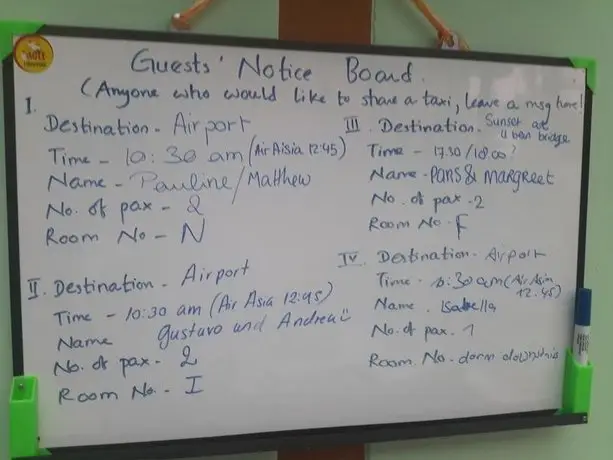 Guests' Notice Board.
(Anyone who would like to share a taxi, leave a msg here!
I.
Destination - Airport
Time - 10:30 am (Air Aisia 12:45)
Name - Pauline/Matthew
No. of pax - 2
Room No - N
II. Destination - Airport
Time - 10:30 am (Air Asia 12:45)
Name Gustavo und Andrea
No. of pax - 2
Room No. - I
III. Destination - Sunset at
U ben bridge
Time - 17.30/18.00?
Name - Pans & Margreet
No. of pax - 2
Room No - F
IV. Destination - Airport
Time - 10:30 am (Air Asia
12.45)
Name. Isabella
No. of pax. 1
Room. No - dorm